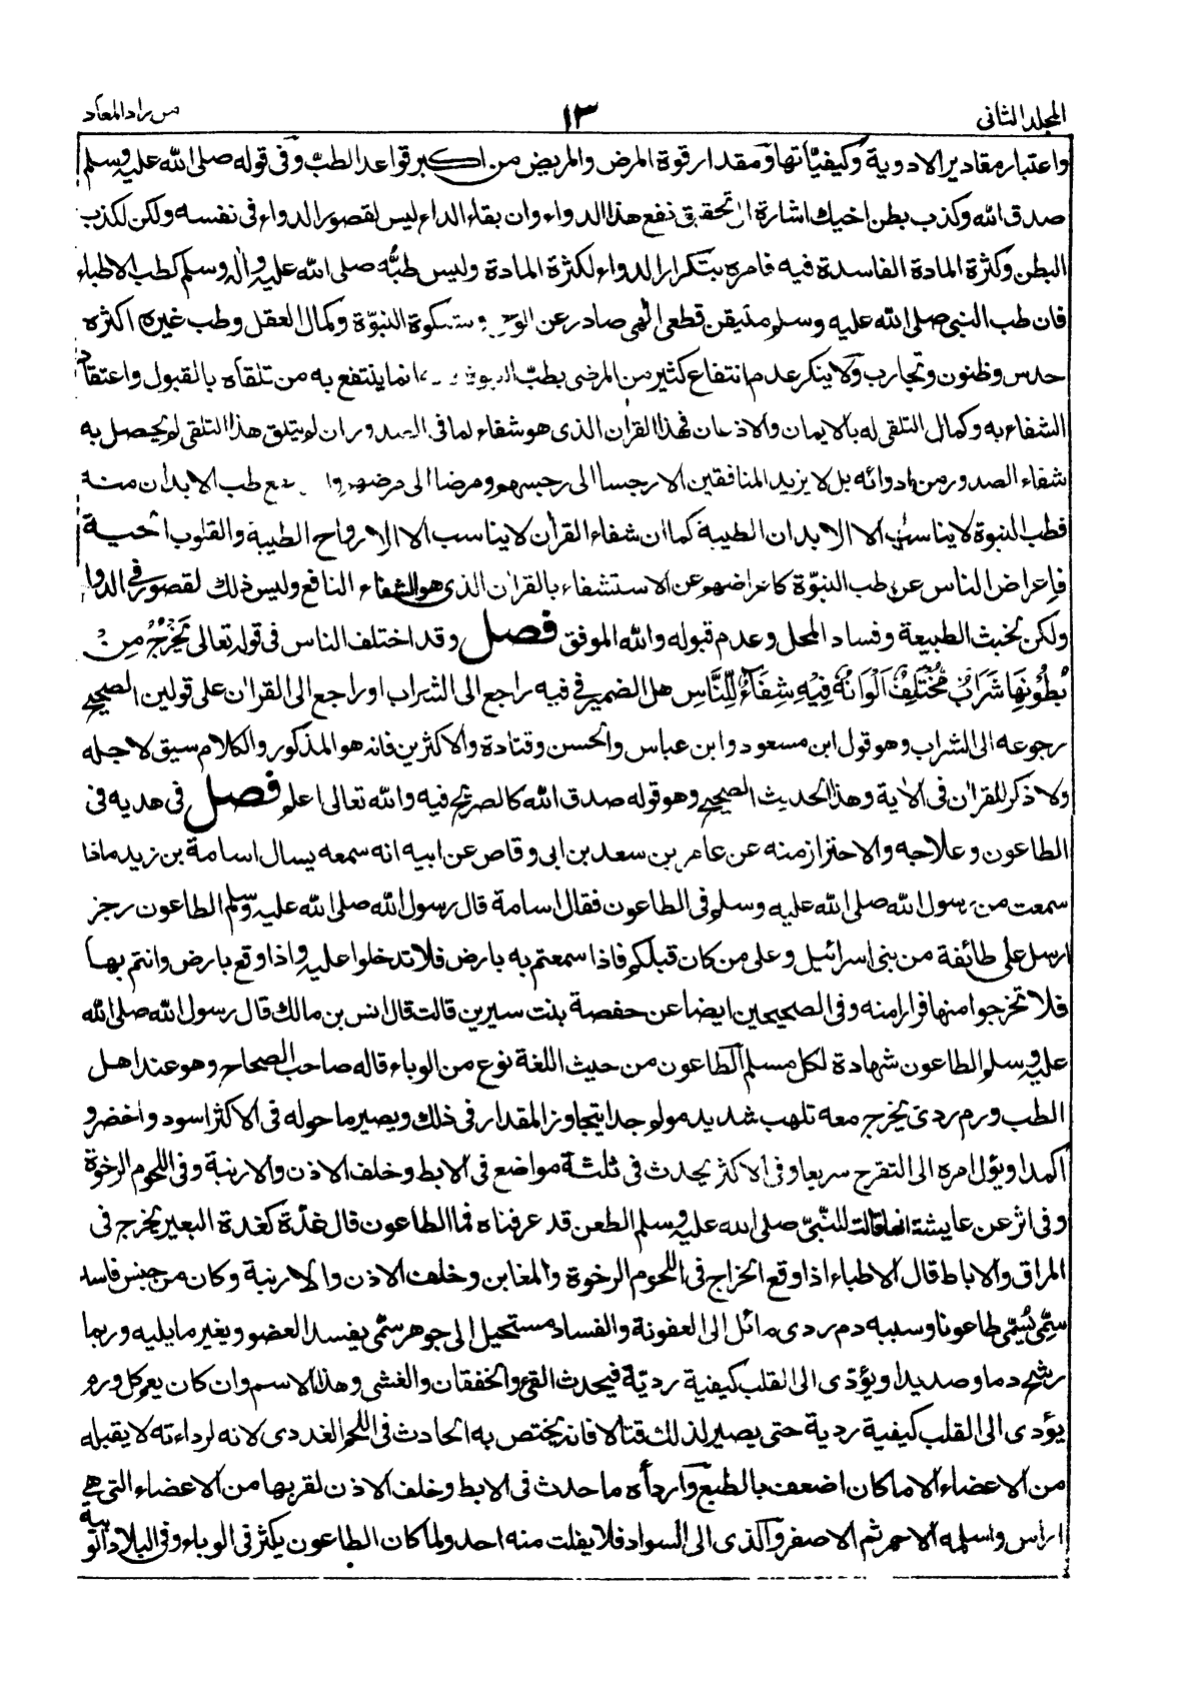 المجلد الثانى
١٣
من زاد المعاد
واعتبار مقادير الادوية وكيفياتها ومقدار قوة المرض والمريض من اكبر قواعد الطب وفى قوله صلى الله عليه وسلم
صدق الله وكذب بطن اخيك اشارة الى تحقيق نفع هذا الدواء وان بقاء الداء ليس لقصور الدواء فى نفسه ولكن لكذب
البطن وكثرة المادة الفاسدة فيه فامره بتكرار الدواء لكثرة المادة وليس طبه صلى الله عليه واله وسلم كطب الاطباء
فان طب النبى صلى الله عليه وسلم متيقن قطعى الهى صادر عن الوحى ومشكوة النبوة وكمال العقل وطب غيره اكثره
حدس وظنون وتجارب ولا ينكر عدم انتفاع كثير من المرضى بطب النبوة انما ينتفع به من تلقاه بالقبول واعتقاد
الشفاء به وكمال التلقى له بالايمان والاذعان فهذا القرآن الذى هو شفاء لما فى الصدور ان لم يتلق هذا التلقى لم يحصل به
شفاء الصدور من ادوائه بل لا يزيد المنافقين الا رجسا الى رجسهم ومرضا الى مرضهم يقع طب الابدان منه
فطب النبوة لا يناسب الا الابدان الطيبة كما ان شفاء القرآن لا يناسب الا الارواح الطيبة والقلوب الحية
فاعراض الناس عن طب النبوة كاعراضهم عن الاستشفاء بالقرآن الذى هو الشفاء النافع وليس ذلك لقصور فى الدوا
ولكن لخبث الطبيعة وفساد المحل وعدم قبوله والله الموفق فصل وقد اختلف الناس فى قوله تعالى يَخْرُجُ مِنْ
بُطُونِهَا شَرَابٌ مُخْتَلِفٌ اَلْوَانُهُ فِيْهِ شِفَآءٌ لِلنَّاسِ هل الضمير فى فيه راجع الى الشراب او راجع الى القرآن على قولين الصحيح
رجوعه الى الشراب وهو قول ابن مسعود وابن عباس والحسن وقتادة والاكثرين فانه هو المذكور والكلام سيق لاجله
ولا ذكر للقرآن فى الآية وهذا الحديث الصحيح وهو قوله صدق الله كالصريح فيه والله تعالى اعلم فصل فى هديه فى
الطاعون وعلاجه والاحتراز منه عن عامر بن سعد بن ابى وقاص عن ابيه انه سمعه يسال اسامة بن زيد ماذا
سمعت من رسول الله صلى الله عليه وسلم فى الطاعون فقال اسامة قال رسول الله صلى الله عليه وسلم الطاعون رجز
ارسل على طائفة من بنى اسرائيل وعلى من كان قبلكم فاذا سمعتم به بارض فلا تدخلوا عليه واذا وقع بارض وانتم بها
فلا تخرجوا منها فرارا منه وفى الصحيحين ايضا عن حفصة بنت سيرين قالت قال انس بن مالك قال رسول الله صلى الله
عليه وسلم الطاعون شهادة لكل مسلم الطاعون من حيث اللغة نوع من الوباء قاله صاحب الصحاح وهو عند اهل
الطب ورم ردئ يخرج معه تلهب شديد مولم جدا يتجاوز المقدار فى ذلك ويصير ما حوله فى الاكثر اسود واخضر و
اكمد اويؤل امره الى التقرح سريعا وفى الاكثر يحدث فى ثلثة مواضع فى الابط وخلف الاذن والارنبة وفى اللحوم الرخوة
وفى اثر عن عايشة انها قالت للنبى صلى الله عليه وسلم الطعن قد عرفناه فما الطاعون قال غدة كغدة البعير يخرج فى
المراق والاباط قال الاطباء اذا وقع الخراج فى اللحوم الرخوة والمغابن وخلف الاذن والارنبة وكان من جنس فاسد
سمى يسمى طاعونا وسببه دم ردى مائل الى العفونة والفساد مستحيل الى جوهر سمى يفسد العضو ويغير ما يليه وربما
رشح دما وصديدا ويؤدى الى القلب كيفية ردية فيحدث القئ والخفقان والغشى وهذا الاسم وان كان يعم كل ورم
يؤدى الى القلب كيفية ردية حتى يصير لذلك قتالا فانه يختص به الحادث فى اللحم الغددى لانه لرداءته لا يقبله
من الاعضاء الا ما كان اضعف بالطبع واردأه ما حدث فى الابط وخلف الاذن لقربها من الاعضاء التى هى
ارأس واسلمه الاحمر ثم الاصفر والذى الى السواد فلا يفلت منه احد ولما كان الطاعون يكثر فى الوباء وفى البلاد الوبية